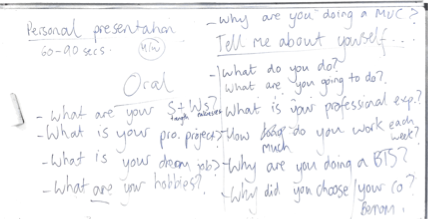 Personal presentation
60-90 secs.
Oral
- What are your S + Ws?
- What is your pro. project?
- What is your dream job?
- What are your hobbies?
- Why are you doing a MUC?
Tell me about yourself...
- What do you do?
What are you going to do?
What is your professional exp.?
- How do you work each week?
much
- Why are you doing a BTS?
- Why did you choose your co?